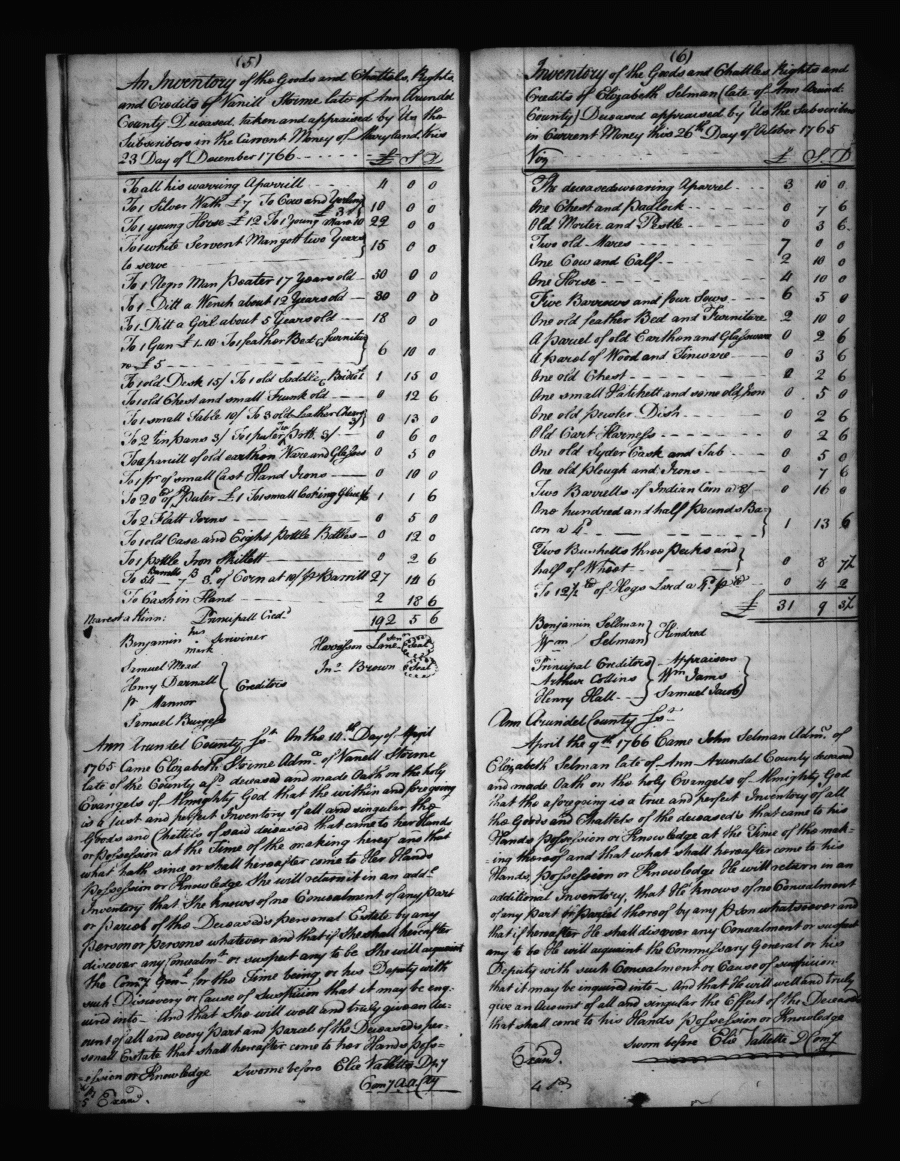 (5)
An Inventory of the Goods and Chattels, Rights,
and Credits of Vanill Storme late of Ann Arundel
County Deceased, taken and appraised by Us the
Subscribers in the Current Money of Maryland this
23 Day of December 1766 £ S D
To all his warring Aparrill 4 0 0
To 1 Silver Wath £7 To Cow and Yerling £3 10 0 0
To 1 young Horse £12 To 1 Young Mare 10 22 0 0
To 1 white Servent Man gott two Years
to serve 15 0 0
To 1 Negro Man Peater 17 Years old 30 0 0
To 1 Ditt a Wench about 12 Years old 30 0 0
To 1 Ditt a Girl about 5 Years old 18 0 0
To 1 Gun £1..10 To 1 feather Bed & furnitier
£5 6 10 0
To 1 old Desk 15/ To 1 old Saddle & Bridle 1 15 0
To 1 old Chest and small Trunk old 0 12 6
To 1 small Table 10/ To 3 old Leather Chears 3/ 0 13 0
To 2 Tin pans 3/ To 1 puter Pott 3/ 0 6 0
To a parcill of old earthen Ware and Glasses 0 5 0
To 1 pr of small Cast Hand Irons 0 10 0
To 20 lb of puter £1 To 1 small Looking Glass 1 1 6
To 2 Flatt Irons 0 5 0
To 1 old Case and Eight pottle Bottles 0 12 0
To 1 pottle Iron Skillett 0 2 6
To 54 Barrells 7 B 3 p of Corn at 10/ pr Barrill 27 14 6
To Cash in Hand 2 18 6
Nearest a Kinn: Principall Credrs 192 5 6
Benjamin his mark Scriviner Harrisson Lane Senr Seal
Samuel Mead Jno Brown Seal
Henry Darnall Creditors
Mannor
Samuel Burgess
Ann Arundel County Sst On the 14th Day of April
1765 Came Elizabeth Strime Admx of Vanell Storme
late of the County afd deceased and made Oath on the holy
Evangels of Almighty God that the within and foregoing
is a just and perfect Inventory of all and singular the
Goods and Chettels of said deceased that came to her Hands
or possession at the Time of the making hereof and that
what hath since or shall hereafter come to Her Hands
possession or Knowledge She will return it in an addl
Inventory that She knows of no Concealment of any part
or parcel of the Deceased's personal Estate by any
person or persons whatever and that if She shall hereafter
discover any Concealmt or suspect any to be She will acquaint
the Comy Genl for the Time being or his Deputy with
such Discovery or Cause of Suspicion that it may be enq:
uired into And that She will well and truly give an Ac:
count of all and every part and parcel of the Deceased's per:
sonal Estate that shall hereafter come to her Hands poss:
ession or Knowledge Sworne before Elie Vallette Dpy
Comy AACty
Exand.
(6)
Inventory of the Goods and Chattles, Rights and
Credits of Elizabeth Selman (late of Ann Arund:
County) Deceased appraised by Us the Subscribers
in Current Money this 26th Day of October 1765
Viz £ S D
The deceased wearing Aparrel 3 10 0
One Chest and padlock 0 7 6
Old Morter and Pestle 0 3 6
Two old Mares 7 0 0
One Cow and Calf 2 10 0
One Horse 4 10 0
Five Barrows and four Sows 6 5 0
One old feather Bed and Furniture 2 10 0
A parcel of old Earthen and Glassware 0 2 6
A parcel of Wood and Tinware 0 3 6
One old Chest 0 2 6
One small Hatchett and some old Iron 0 5 0
One old pewter Dish 0 2 6
Old Cart Harness 0 2 6
One old Syder Cask and Tub 0 5 0
One old plough and Irons 0 7 6
Two Barrells of Indian Corn a 8/ 0 16 0
One hundred and half pounds Ba:
con a 4d 1 13 6
Two Bushells three Pecks and
half of Wheat 0 8 7½
To 12½ lb of Hogs Lard a 4d p lb 0 4 2
£ 31 9 3½
Benjamin Sellman
Wm Selman Kindred
Principal Creditors Appraisers
Arthur Collins Wm Iams
Henry Hall Samuel Jacob
Ann Arundel County Sst
April the 9th 1766 Came John Selman Admr of
Elizabeth Selman late of Ann Arundal County deceased
and made Oath on the holy Evangels of Almighty God
that the aforegoing is a true and perfect Inventory of all
the Goods and Chattels of the deceased that came to his
Hands possession or Knowledge at the Time of the mak=
=ing thereof and that what shall hereafter come to his
Hands, possession or Knowledge He will return in an
additional Inventory, that He knows of no Concealment
of any part or parcel thereof by any pson whatsoever and
that if hereafter He shall discover any Concealment or suspect
any to be He will acquaint the Commissary General or his
Deputy with such Concealment or Cause of suspicion:
that it may be inquired into And that He will well and truly
give an Account of all and singular the Effect of the Deceased
that shall come to his Hands possession or Knowledge
Sworn before Elie Vallette D Comy
Exand.